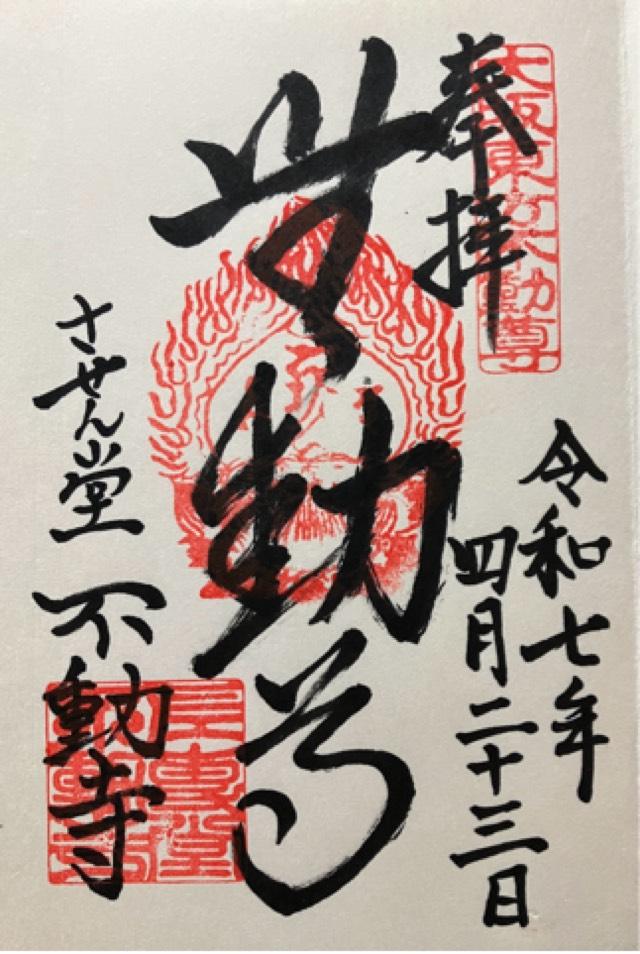 奉拝
大阪東方不動尊
令和七年
四月二十三日
動尊
させん堂 不動寺